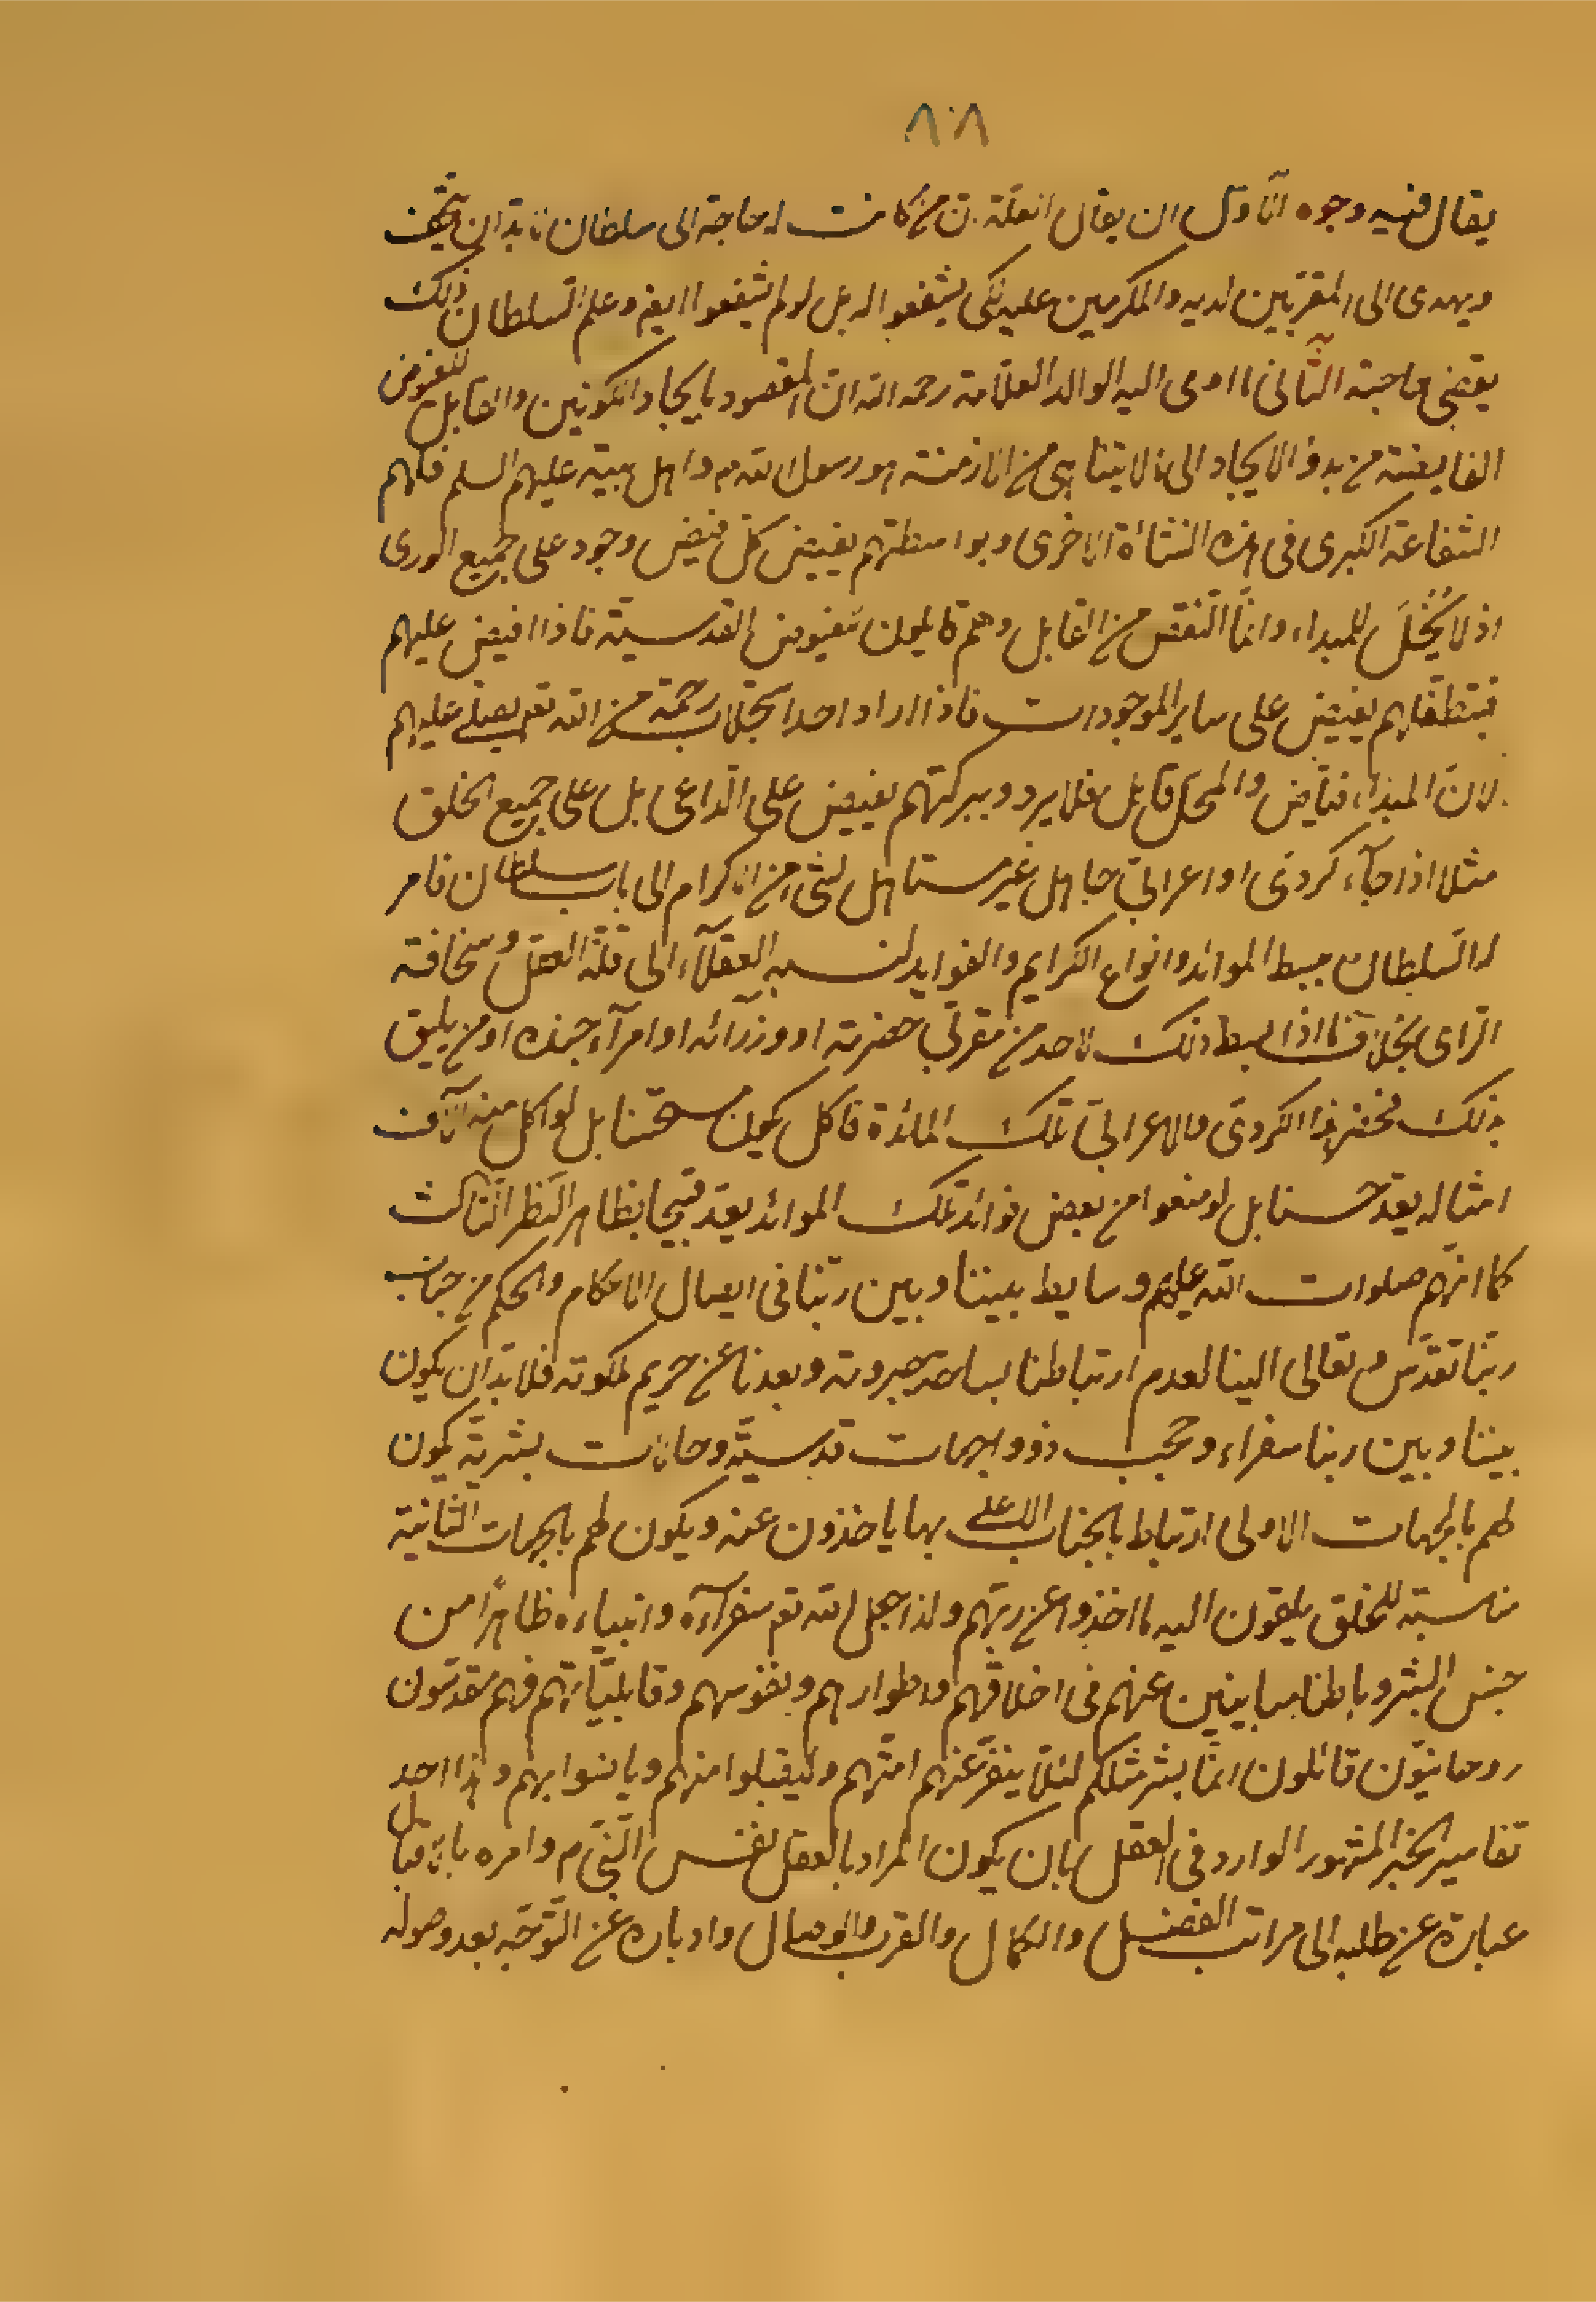 ٨٠٨
يقال فيه وجوه الاول ان يقال انعلة من كانت له حاجة الى سلطان لابد ان يتحف
ويهدى الى المقربين لديه والمكرمين عليه لكى يشفعوا له بل لو لم يشفعوا ايضا وعلم السلطان ذلك
يقضى حاجته الثانى ما اومى اليه الوالد العلامة رحمه الله ان المقصود بايجاد الكونين والقابل للفيوض
الفايضة من بدو الايجاد الى ما لا يتناهى من الازمنة هو رسول الله ص واهل بيته عليهم السلم فلهم
الشفاعة الكبرى فى هذه النشأة الاخرى وبواسطتهم يفيض كل فيض وجود على جميع الورى
اذ لا بخل للمبداء وانما النقص من القابل وهم قابلون لفيوض القدسية فاذا افيض عليهم
فبتطفلهم يفيض على ساير الموجودات فاذا اراد احد استجلاب رحمة من الله تعم يصلى عليهم
لان المبداء فياض والمحل قابل فلا يرد وببركتهم يفيض على الداعى بل على جميع الخلق
مثلا اذا جآء كردى او اعرابى جاهل غير مستاهل لشئ من الاكرام الى باب سلطان فامر
له السلطان ببسط الموائد وانواع الكرايم والفوايد لنسبه العقلآء الى قلة العقل وسخافة
الراى بخلاف ما اذا بسط ذلك لاحد من مقربى حضرته او وزرآئه او امرآء جنده او من يليق
بذلك فحضر هذا الكردى والاعرابى تلك المائدة فاكل يكون مستحسنا بل لو اكل منه آلاف
امثاله يعد حسنا بل لو منعوا من بعض فوائد تلك الموائد يعد قبيحا بظاهر النظر الثالث
كما انهم صلوات الله عليهم وسايط بيننا وبين ربنا فى ايصال الاحكام والحكم من جناب
ربنا تقدس وتعالى الينا لعدم ارتباطنا بساحة جبروته وبعدنا عن حريم ملكوته فلا بد ان يكون
بيننا وبين ربنا سفراء وحجب ذووا جهات قدسية وحالات بشرية يكون
لهم بالجهات الاولى ارتباط بالجناب الاعلى بها ياخذون عنه ويكون لهم بالجهات الثانية
مناسبة للخلق يلقون اليه ما اخذوا عن ربهم ولذا جعل الله تعم سفرآءه وانبياءه ظاهرا من
جنس البشر وباطنا مباينين عنهم فى اخلاقهم واطوارهم ونفوسهم وقابلياتهم فهم مقدسون
روحانيون قائلون انما بشر مثلكم لئلا ينفر عنهم امتهم وليقبلوا منهم ويانسوا بهم وهذا احد
تفاسير الخبر المشهور الوارد فى العقل بان يكون المراد بالعقل نفس النبى ص وامره بالاقبال
عبارة عن طلبه الى مراتب الفضل والكمال والقرب والوصال وادباره عن التوجه بعد وصوله